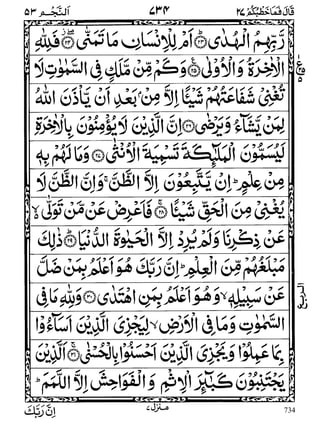 قَالَ فَمَا خَطْبُكُمْ ٢٧ ٧٣٤ اَلنَّجْم ٥٣
رَّبِّهِمُ الْهُدٰى ﴿٢٣﴾ اَمْ لِلْاِنْسَانِ مَا تَمَنّٰى ﴿٢٤﴾ فَلِلّٰهِ
الْاٰخِرَةُ وَالْاُوْلٰى ﴿٢٥﴾ وَكَمْ مِّنْ مَّلَكٍ فِى السَّمٰوٰتِ لَا
تُغْنِىْ شَفَاعَتُهُمْ شَيْئًا اِلَّا مِنْۢ بَعْدِ اَنْ يَّاْذَنَ اللّٰهُ
لِمَنْ يَّشَآءُ وَيَرْضٰى ﴿٢٦﴾ اِنَّ الَّذِيْنَ لَا يُؤْمِنُوْنَ بِالْاٰخِرَةِ
لَيُسَمُّوْنَ الْمَلٰٓئِكَةَ تَسْمِيَةَ الْاُنْثٰى ﴿٢٧﴾ وَمَا لَهُمْ بِهٖ
مِنْ عِلْمٍ ؕ اِنْ يَّتَّبِعُوْنَ اِلَّا الظَّنَّ ۚ وَاِنَّ الظَّنَّ لَا
يُغْنِىْ مِنَ الْحَقِّ شَيْئًا ﴿٢٨﴾ فَاَعْرِضْ عَنْ مَّنْ تَوَلّٰى ۙ
عَنْ ذِكْرِنَا وَلَمْ يُرِدْ اِلَّا الْحَيٰوةَ الدُّنْيَا ﴿٢٩﴾ ذٰلِكَ
مَبْلَغُهُمْ مِّنَ الْعِلْمِ ؕ اِنَّ رَبَّكَ هُوَ اَعْلَمُ بِمَنْ ضَلَّ
عَنْ سَبِيْلِهٖ ۙ وَهُوَ اَعْلَمُ بِمَنِ اهْتَدٰى ﴿٣٠﴾ وَلِلّٰهِ مَا فِى
السَّمٰوٰتِ وَمَا فِى الْاَرْضِ ۙ لِيَجْزِىَ الَّذِيْنَ اَسَآءُوْا
بِمَا عَمِلُوْا وَيَجْزِىَ الَّذِيْنَ اَحْسَنُوْا بِالْحُسْنٰى ﴿٣١﴾ اَلَّذِيْنَ
يَجْتَنِبُوْنَ كَبٰٓئِرَ الْاِثْمِ وَ الْفَوَاحِشَ اِلَّا اللَّمَمَ ؕ
الربع
اِنَّ رَبَّكَ منزل ٧ 734